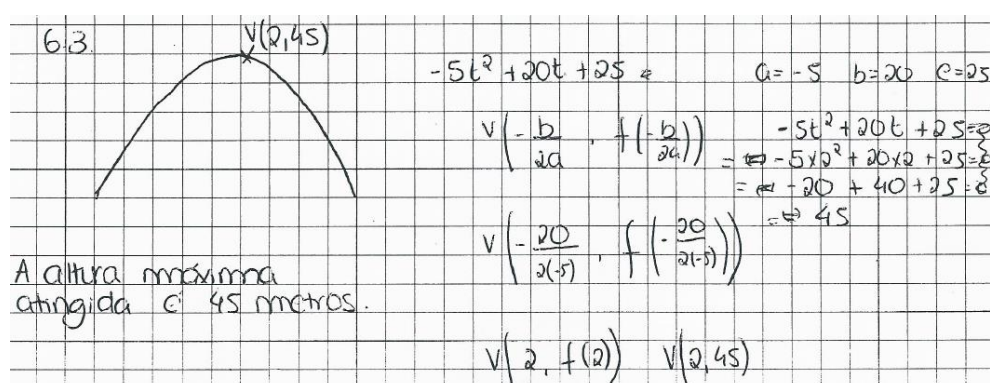 6.3.
V(2,45)
A altura máxima
atingida é 45 metros.
-5t² + 20t + 25 =
a = -5 b = 20 c = 25
V(-b/2a, f(-b/2a))
-5t² + 20t + 25 =
= -5×2² + 20×2 + 25 =
= -20 + 40 + 25 =
= 45
V(-20/2(-5), f(-20/2(-5)))
V(2, f(2)) V(2,45)